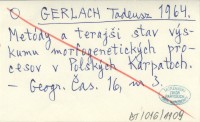 GERLACH Tadeusz 1964.
Metódy a terajši stav výs-
kumu morfogenetických pro-
cesov v Polských Karpatoch.
- Geogr. Čas. 16, 3.
BI/016/1109